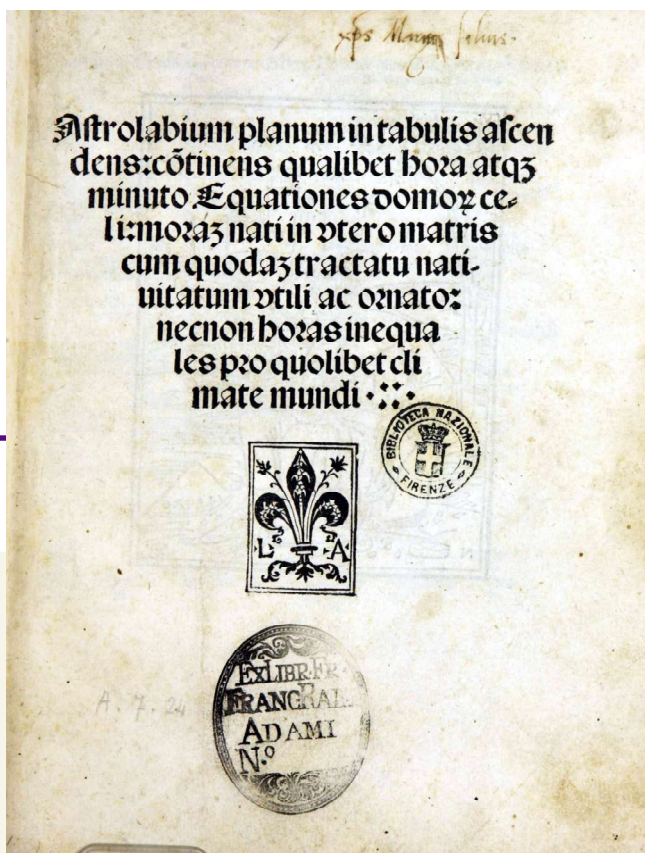 Astrolabium planum in tabulis ascen
dens:cõtinens qualibet hora atqꝫ
minuto Equationes domoꝝ ce⸗
li:moraꝫ nati in vtero matris
cum quodaꝫ tractatu nati-
uitatum vtili ac ornato:
necnon horas inequa
les pro quolibet cli
mate mundi
BIBLIOTECA NAZIONALE
FIRENZE
L A
EX LIBR. FR.
ADAMI
N.º
A. 7. 24